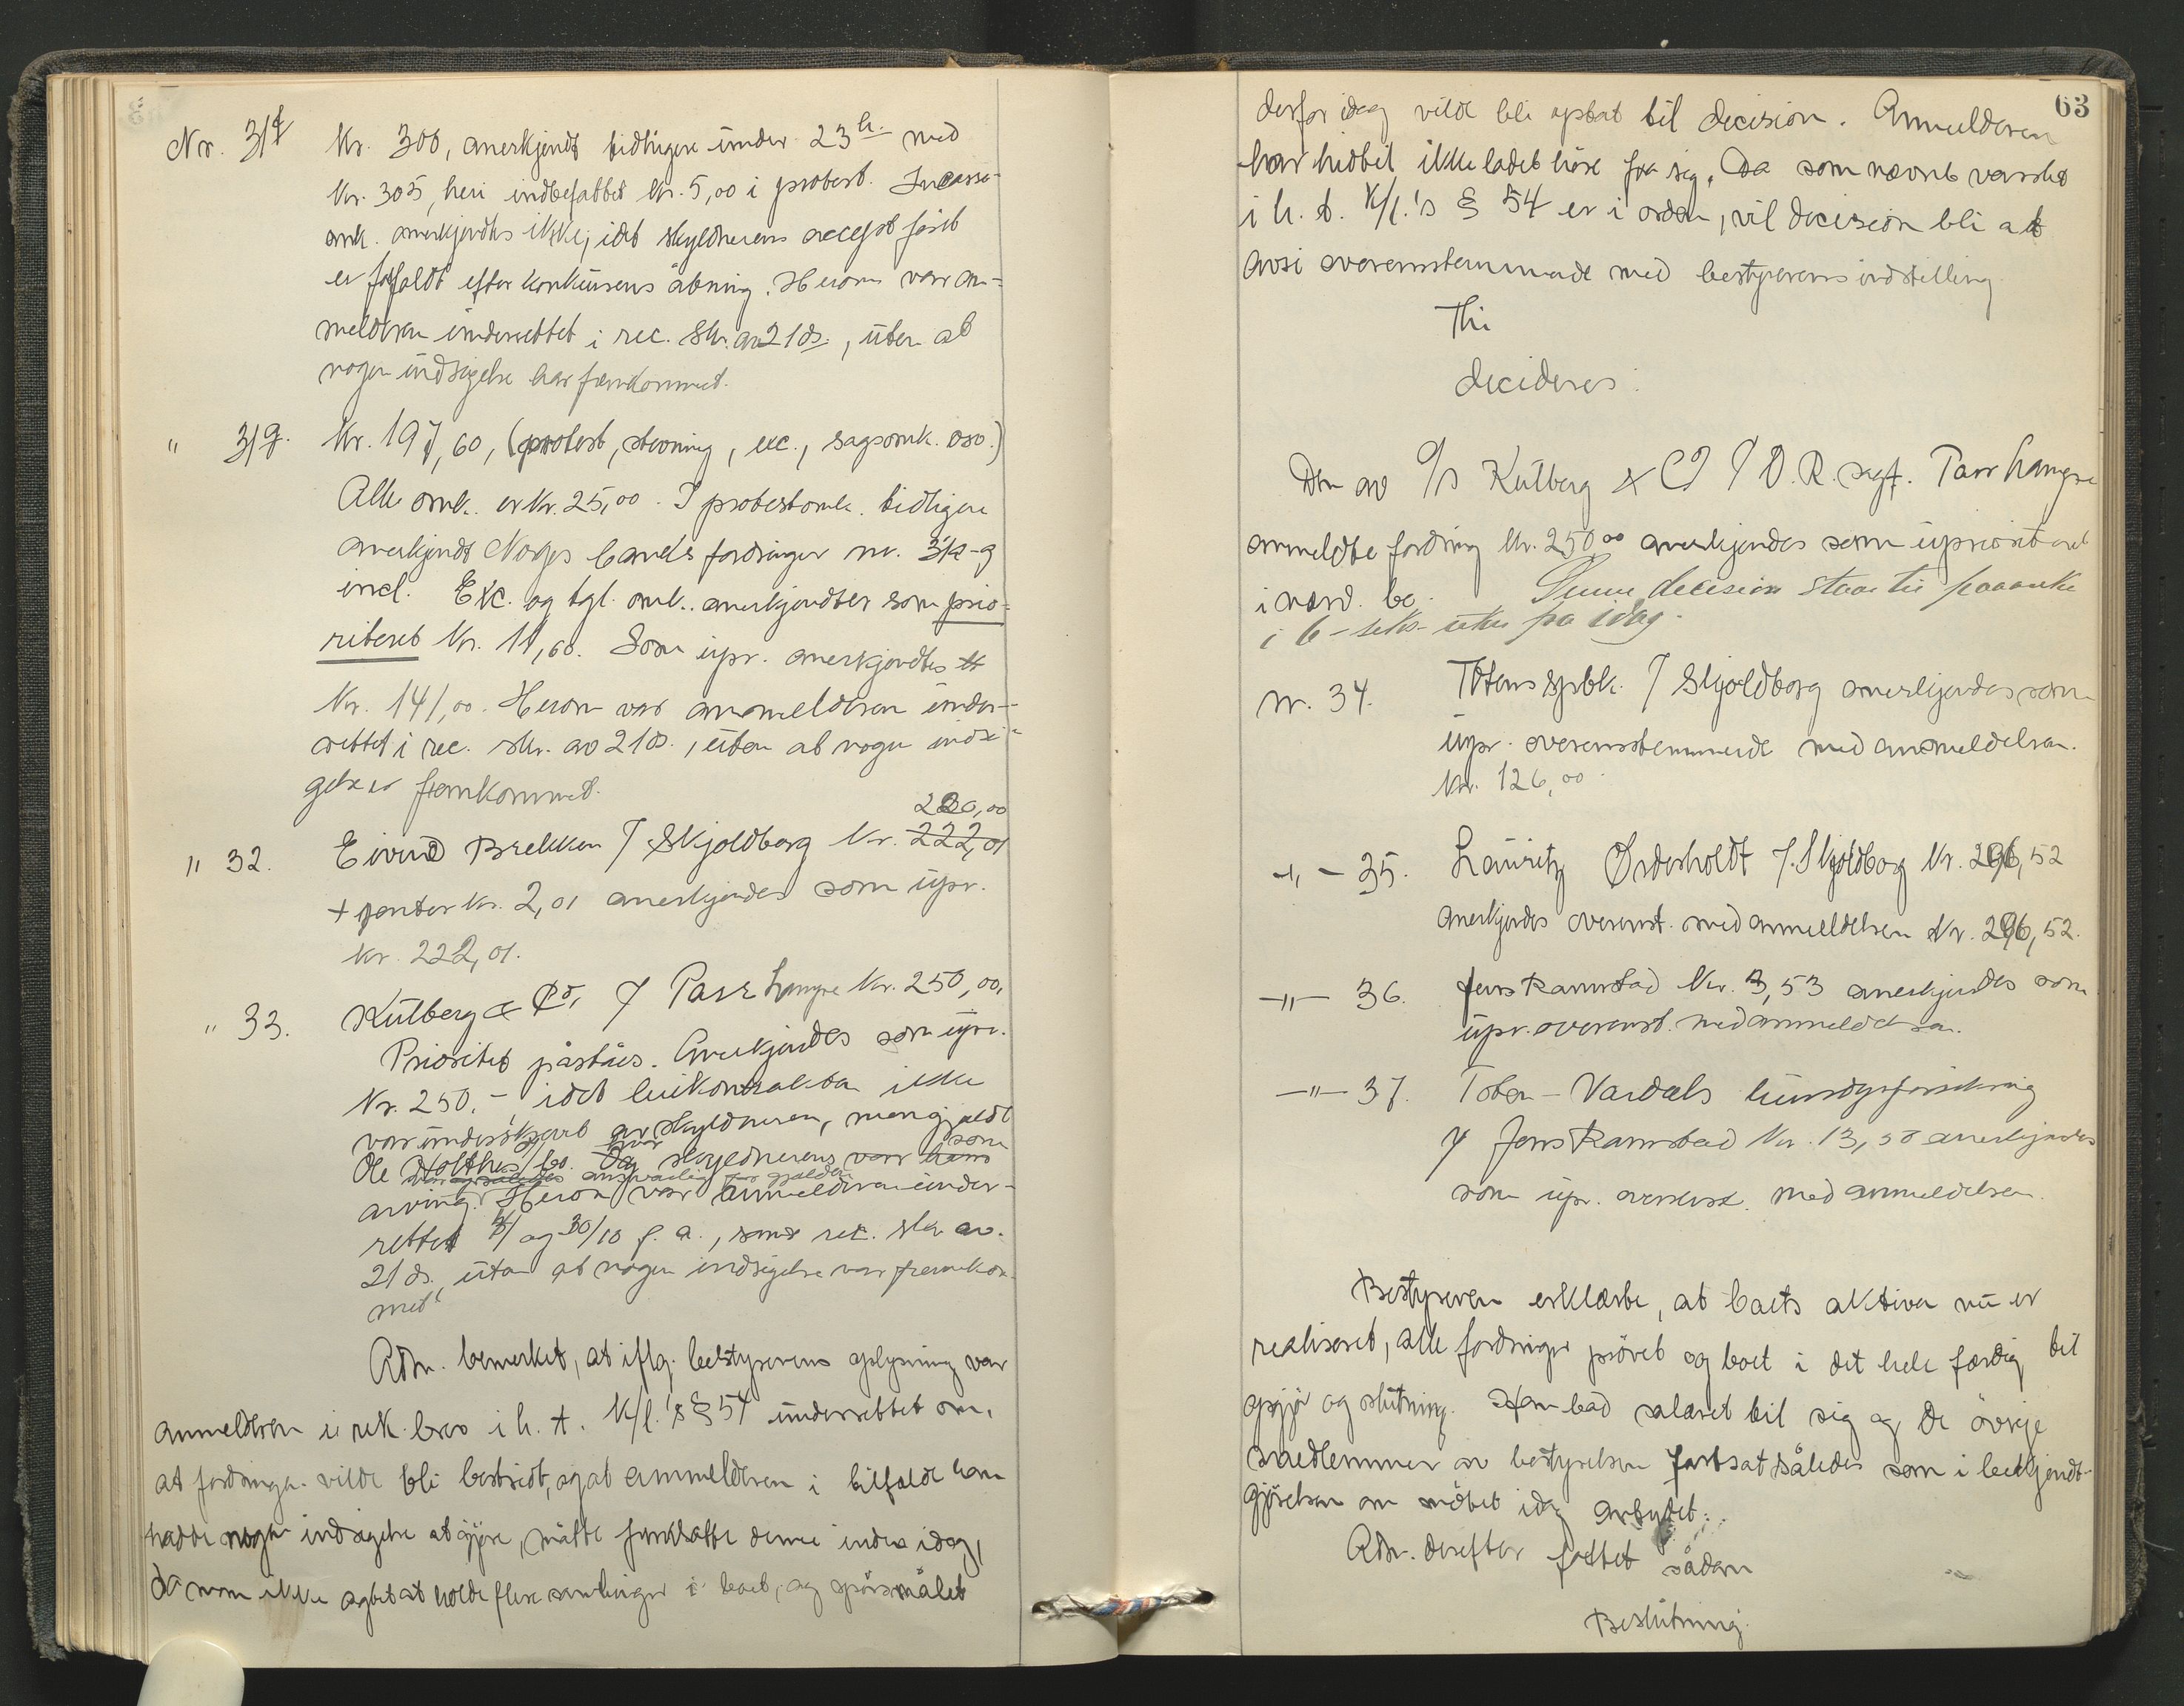 Nr. 31f Kr. 300, anerkjendt tidligere under 23 h. med
Kr. 305, heri indbefattet kr. 5,00 i protest. Incasso-
omk. anerkjendtes ikke, idet skyldnerens accept først
er forfaldt efter konkursens åbning. Herom var an-
melderen underrettet i rec. skr. av 21 ds., uten at
nogen indsigelse har fremkommet.
" 31g. Kr. 197,60, (protest, stevning, exc., sagsomk. osv.)
Alle omk. er kr. 25,00. I protestomk. tidligere
anerkjendt Norges banks fordringer nr. 31a-g
incl. Exc. og tgl. omk. anerkjendtes som prio-
ritert Kr. 11,60. Som upr. anerkjendtes
Kr. 141,00. Herom var anmelderen under-
rettet i rec. skr. av 21 ds., uten at nogen indsi-
gelse er fremkommet.
220,00
" 32. Eivind Brekken / Skjoldborg Kr. 222,01
+ renter kr. 2,01 anerkjendes som upr.
kr. 222,01.
" 33. Kutberg & Co. / Parr Langre Kr. 250,00,
Prioritet påståes. Anerkjendes som upr.
Kr. 250.-, idet leiekontrakten ikke
var underskrevet av skyldneren, men gjaldt
Ole Holthes bo. skyldnerens var hans som
var ansvarlig for gjælden
arving. Herom var anmelderen under-
rettet og 30/10 f. a., samt rec. skr av.
21 ds., uten at nogen indsigelse var fremkom-
met.
Adm. bemerket, at iflg. bestyrerens oplysning var
anmelderen i rek. brev i h. t. K/l.'s § 54 underrettet om,
at fordringen vilde bli bestridt, og at anmelderen i tilfælde han
hadde nogen indsigelse at gjøre, måtte fremsætte denne inden idag,
da man ikke agtet at holde flere samlinger i boet, og spørsmålet
63
derfor idag vilde bli optat til decision. Anmelderen
har hidtil ikke ladet høre fra sig. Da som nævnt varslet
i h. t. K/l.'s § 54 er i orden, vil decision bli at
avsi overensstemmende med bestyrerens indstilling
Thi
decideres:
Den av A/S Kutberg & Co / O.R. sagf. Parr Langre
anmeldte fordring kr. 250 00 anerkjendes som uprioritert
i nærv. bo. Denne decision staar til paaanke
i 6 - seks - uker fra idag.
Nr. 34. Totens spbk. / Skjoldborg anerkjendes som
upr. overensstemmende med anmeldelsen.
Kr. 126,00
-"- 35. Lauritz Ørderholdt /. Skjoldborg Kr. 296,52
anerkjendes overenst. med anmeldelsen Kr. 296,52.
-"- 36. Jens Ramstad Kr. 3,53 anerkjendes som
upr. overenst. med anmeldelsen.
-"- 37. Toten - Vardals husdyrforsikring
/ Jens Ramstad Kr. 13,50 anerkjendes
som upr. overenst. med anmeldelsen.
Bestyreren erklærte, at boets aktiver nu er
realiseret, alle fordringer prøvet og boet i det hele færdig til
opgjør og slutning. Han bad salæret til sig og de øvrige
medlemmer av bestyrelsen fastsat således som i bekjendt-
gjørelsen om møtet idag antydet.
Adm. derefter fattet sådan
Beslutning